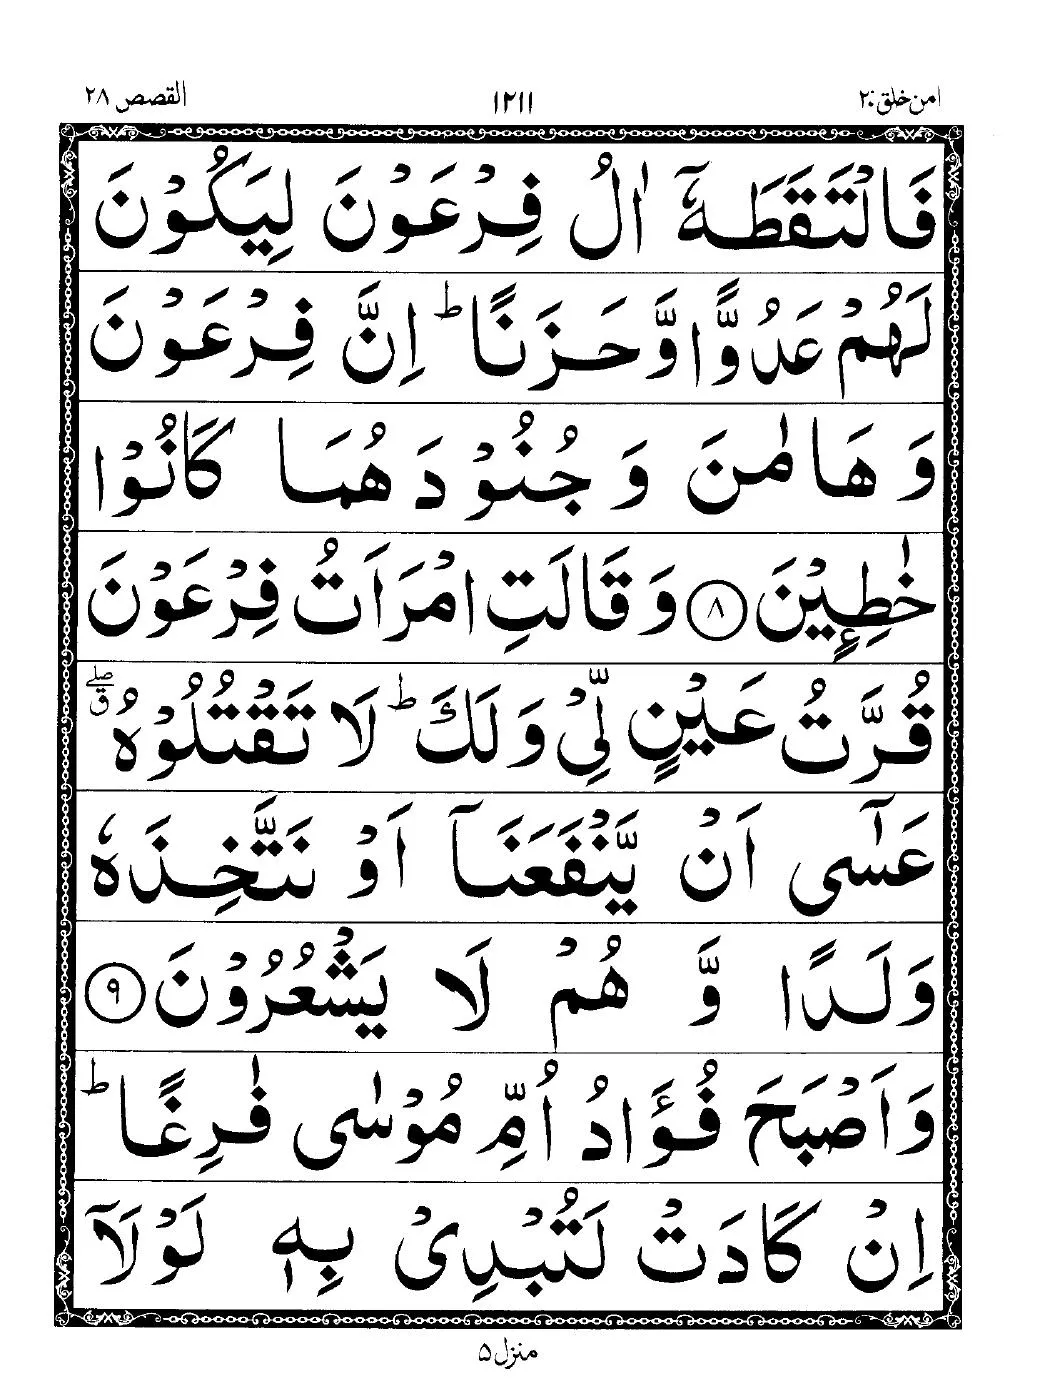 امن خلق ۲۰
۱۲۱۱
القصص ۲۸
فَالْتَقَطَهٗۤ اٰلُ فِرْعَوْنَ لِیَكُوْنَ
لَهُمْ عَدُوًّا وَّحَزَنًا ؕ اِنَّ فِرْعَوْنَ
وَ هَامٰنَ وَ جُنُوْدَهُمَا كَانُوْا
خٰطِـِٕیْنَ ۸ وَ قَالَتِ امْرَاَتُ فِرْعَوْنَ
قُرَّتُ عَیْنٍ لِّیْ وَ لَكَ ؕ لَا تَقْتُلُوْهُ ۖق
عَسٰۤی اَنْ یَّنْفَعَنَاۤ اَوْ نَتَّخِذَهٗ
وَلَدًا وَّ هُمْ لَا یَشْعُرُوْنَ ۹
وَ اَصْبَحَ فُؤَادُ اُمِّ مُوْسٰی فٰرِغًا ؕ
اِنْ كَادَتْ لَتُبْدِیْ بِهٖ لَوْلَاۤ
منزل ۵